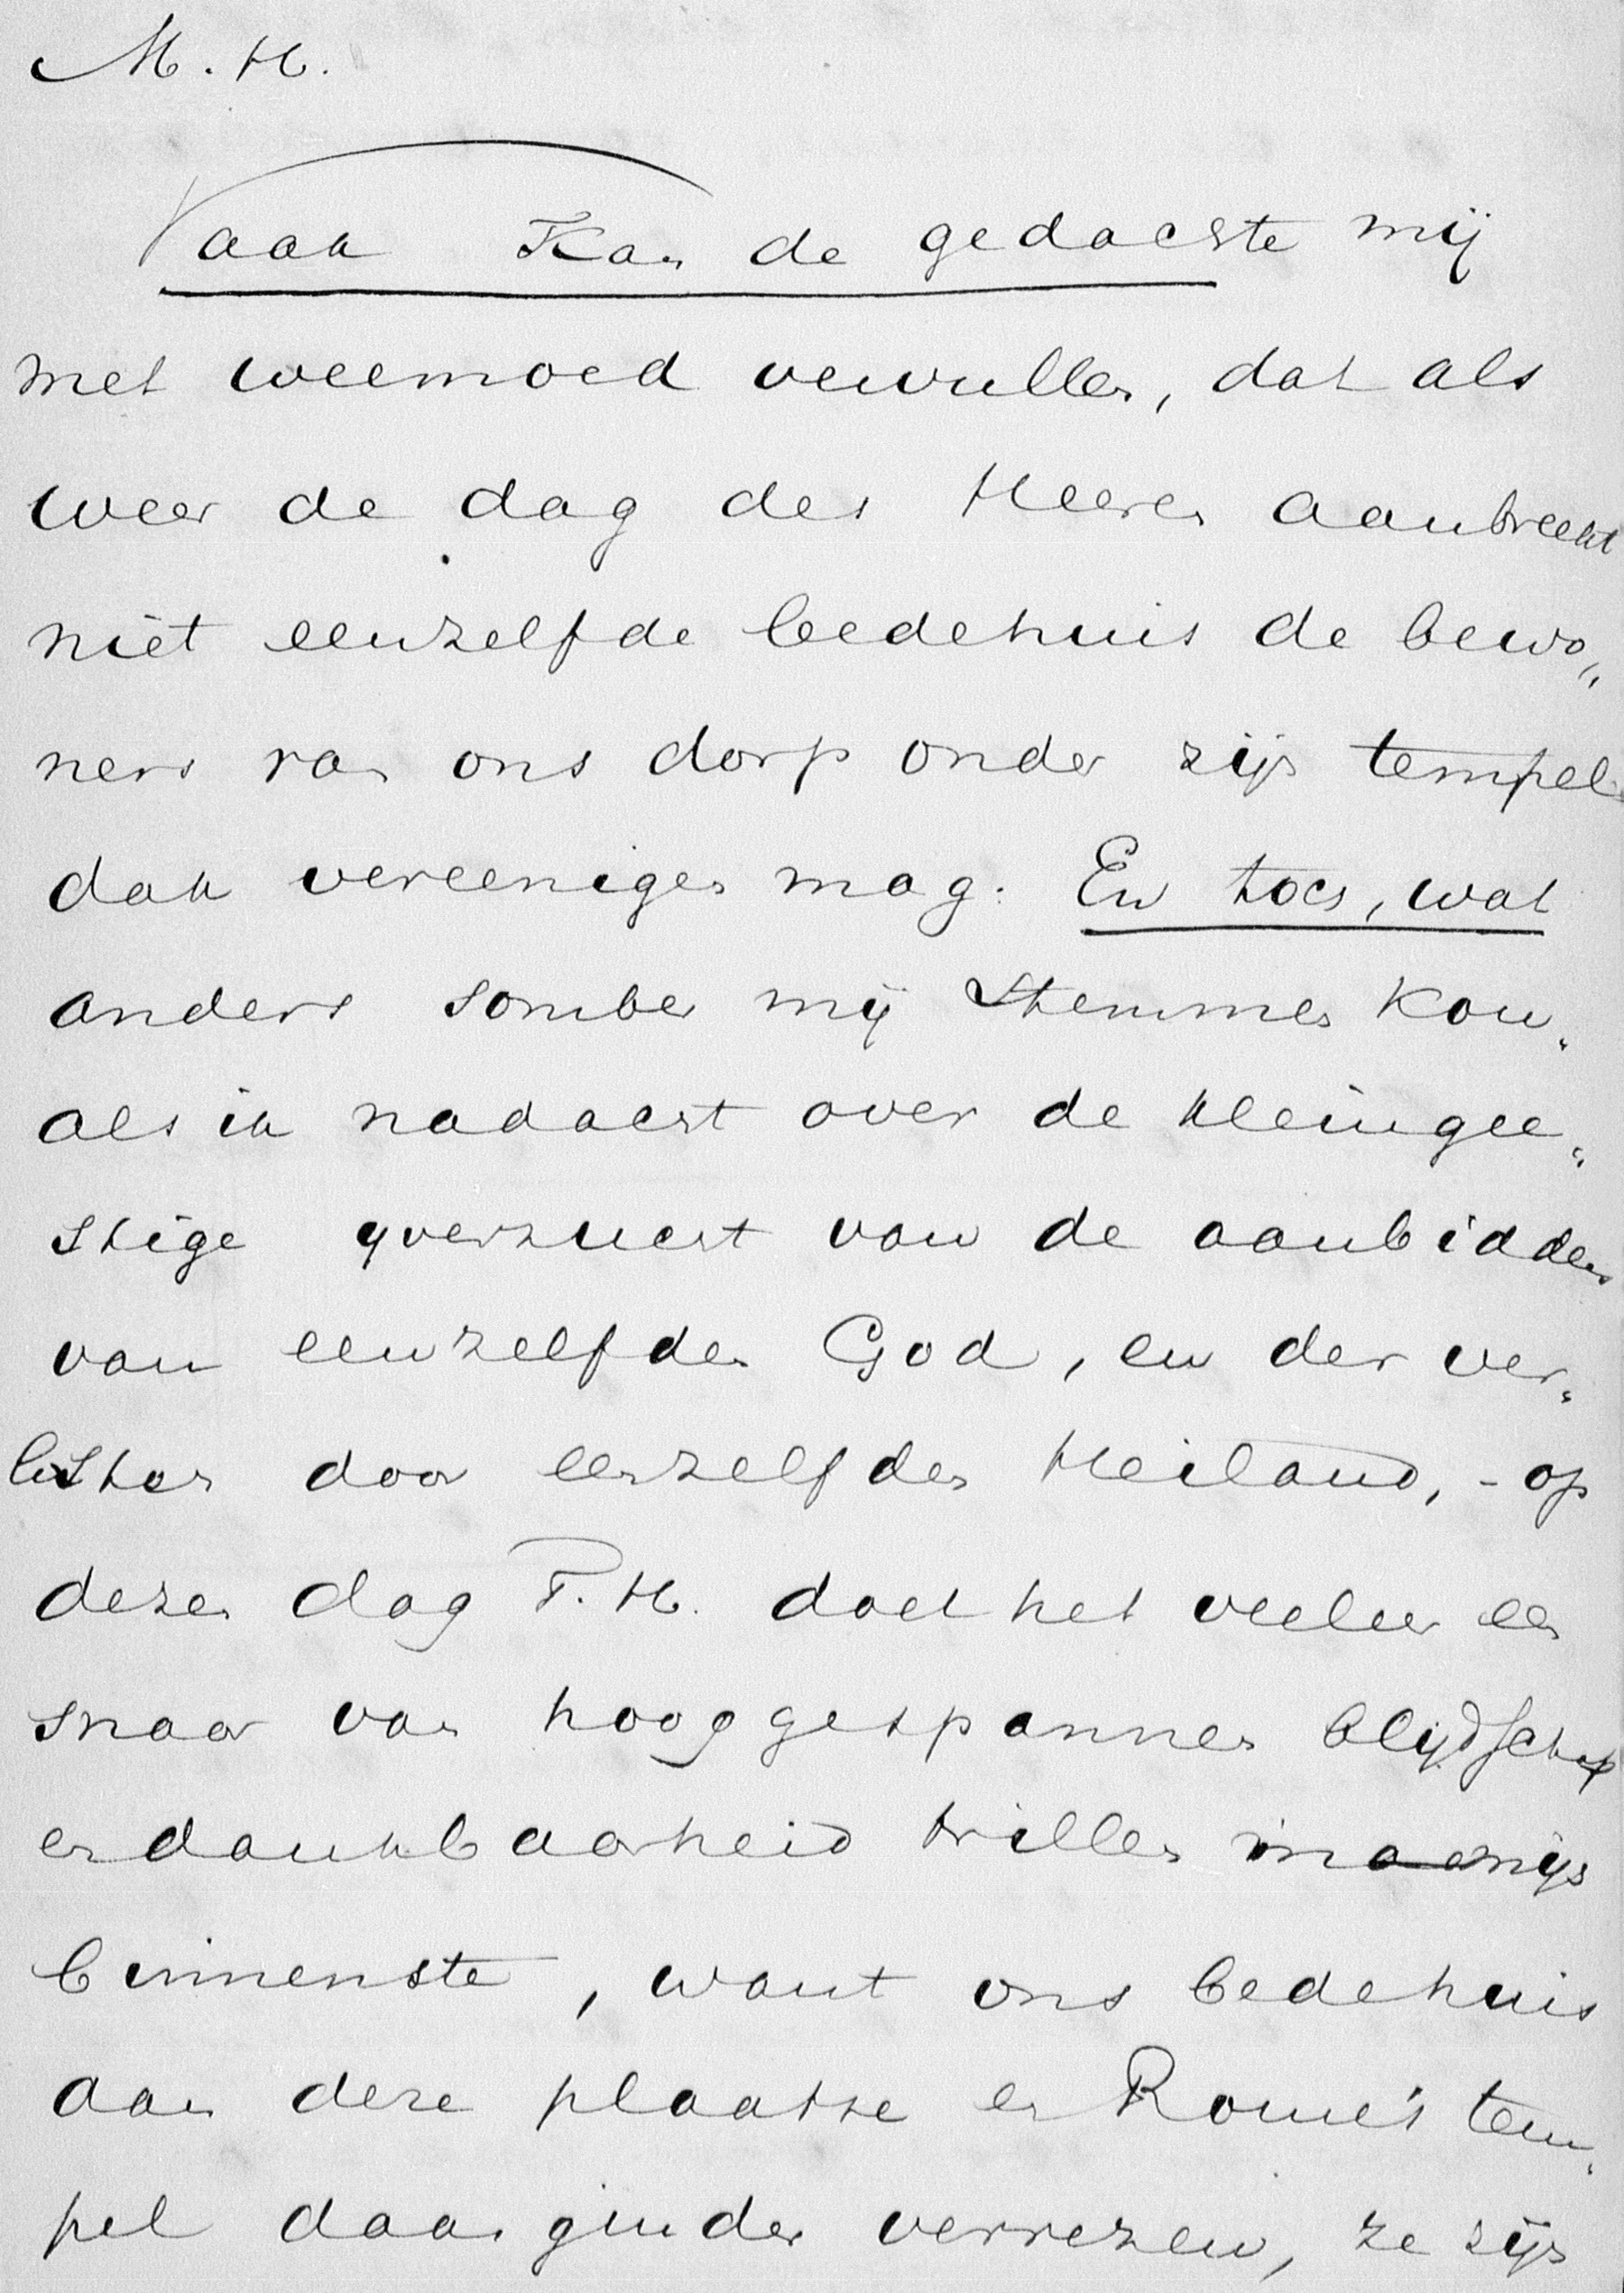 M. H.
Vaak kan de gedachte mij
met weemoed vervullen, dat als
weer de dag des Heeren aanbreekt
niet eenzelfde bedehuis de bewo„
ners van ons dorp onder zijn tempel
dak vereenigen mag. En toch, wat
anders somber mij stemmen kon„
als ik nadacht over de kleingee„
stige ijverzucht van de aanbidders
van eenzelfden God, en der ver„
losten door eenzelfden Heiland, - op
dezen dag T. H. doet het veeleer een
snaar van hooggespannen blijdschap
en dankbaarheid trillen in mijn
binnenste, want ons bedehuis
aan deze plaatse en Rome's tem„
pel daar ginder verrezen, ze zijn